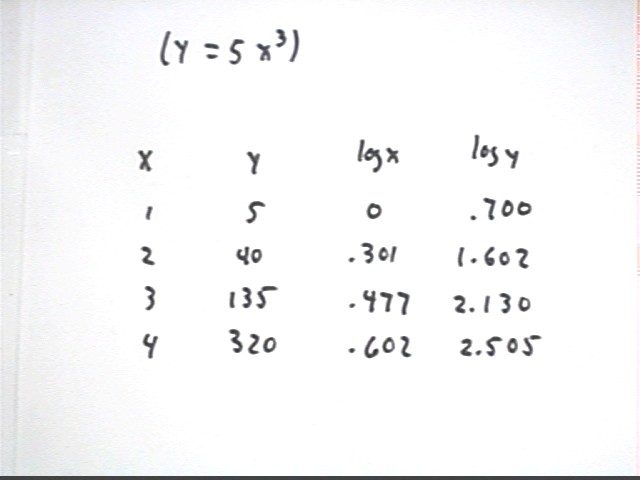 (Y = 5 x³)
X Y log x log y
1 5 0 .700
2 40 .301 1.602
3 135 .477 2.130
4 320 .602 2.505